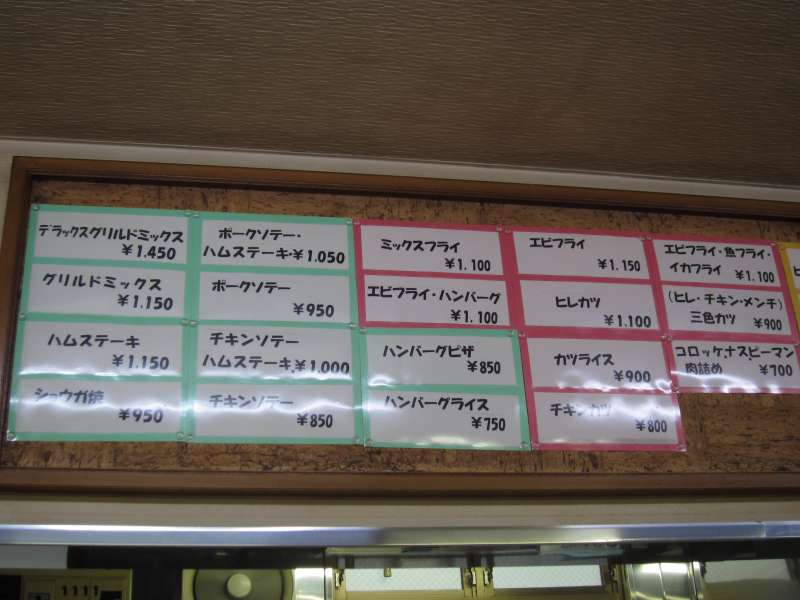 デラックスグリルドミックス
¥1.450
グリルドミックス
¥1.150
ハムステーキ
¥1.150
ショウガ焼
¥950
ポークソテー・
ハムステーキ・¥1.050
ポークソテー
¥950
チキンソテー
ハムステーキ.¥1.000
チキンソテー
¥850
ミックスフライ
¥1.100
エビフライ・ハンバーグ
¥1.100
ハンバーグピザ
¥850
ハンバーグライス
¥750
エビフライ
¥1.150
ヒレカツ
¥1.100
カツライス
¥900
チキンカツ
¥800
エビフライ・魚フライ・
イカフライ ¥1.100
(ヒレ・チキン・メンチ)
三色カツ ¥900
コロッケ.ナスピーマン
肉詰め ¥700